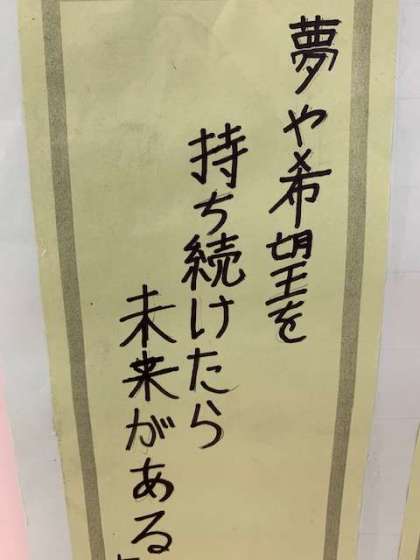 夢や希望を
持ち続けたら
未来がある